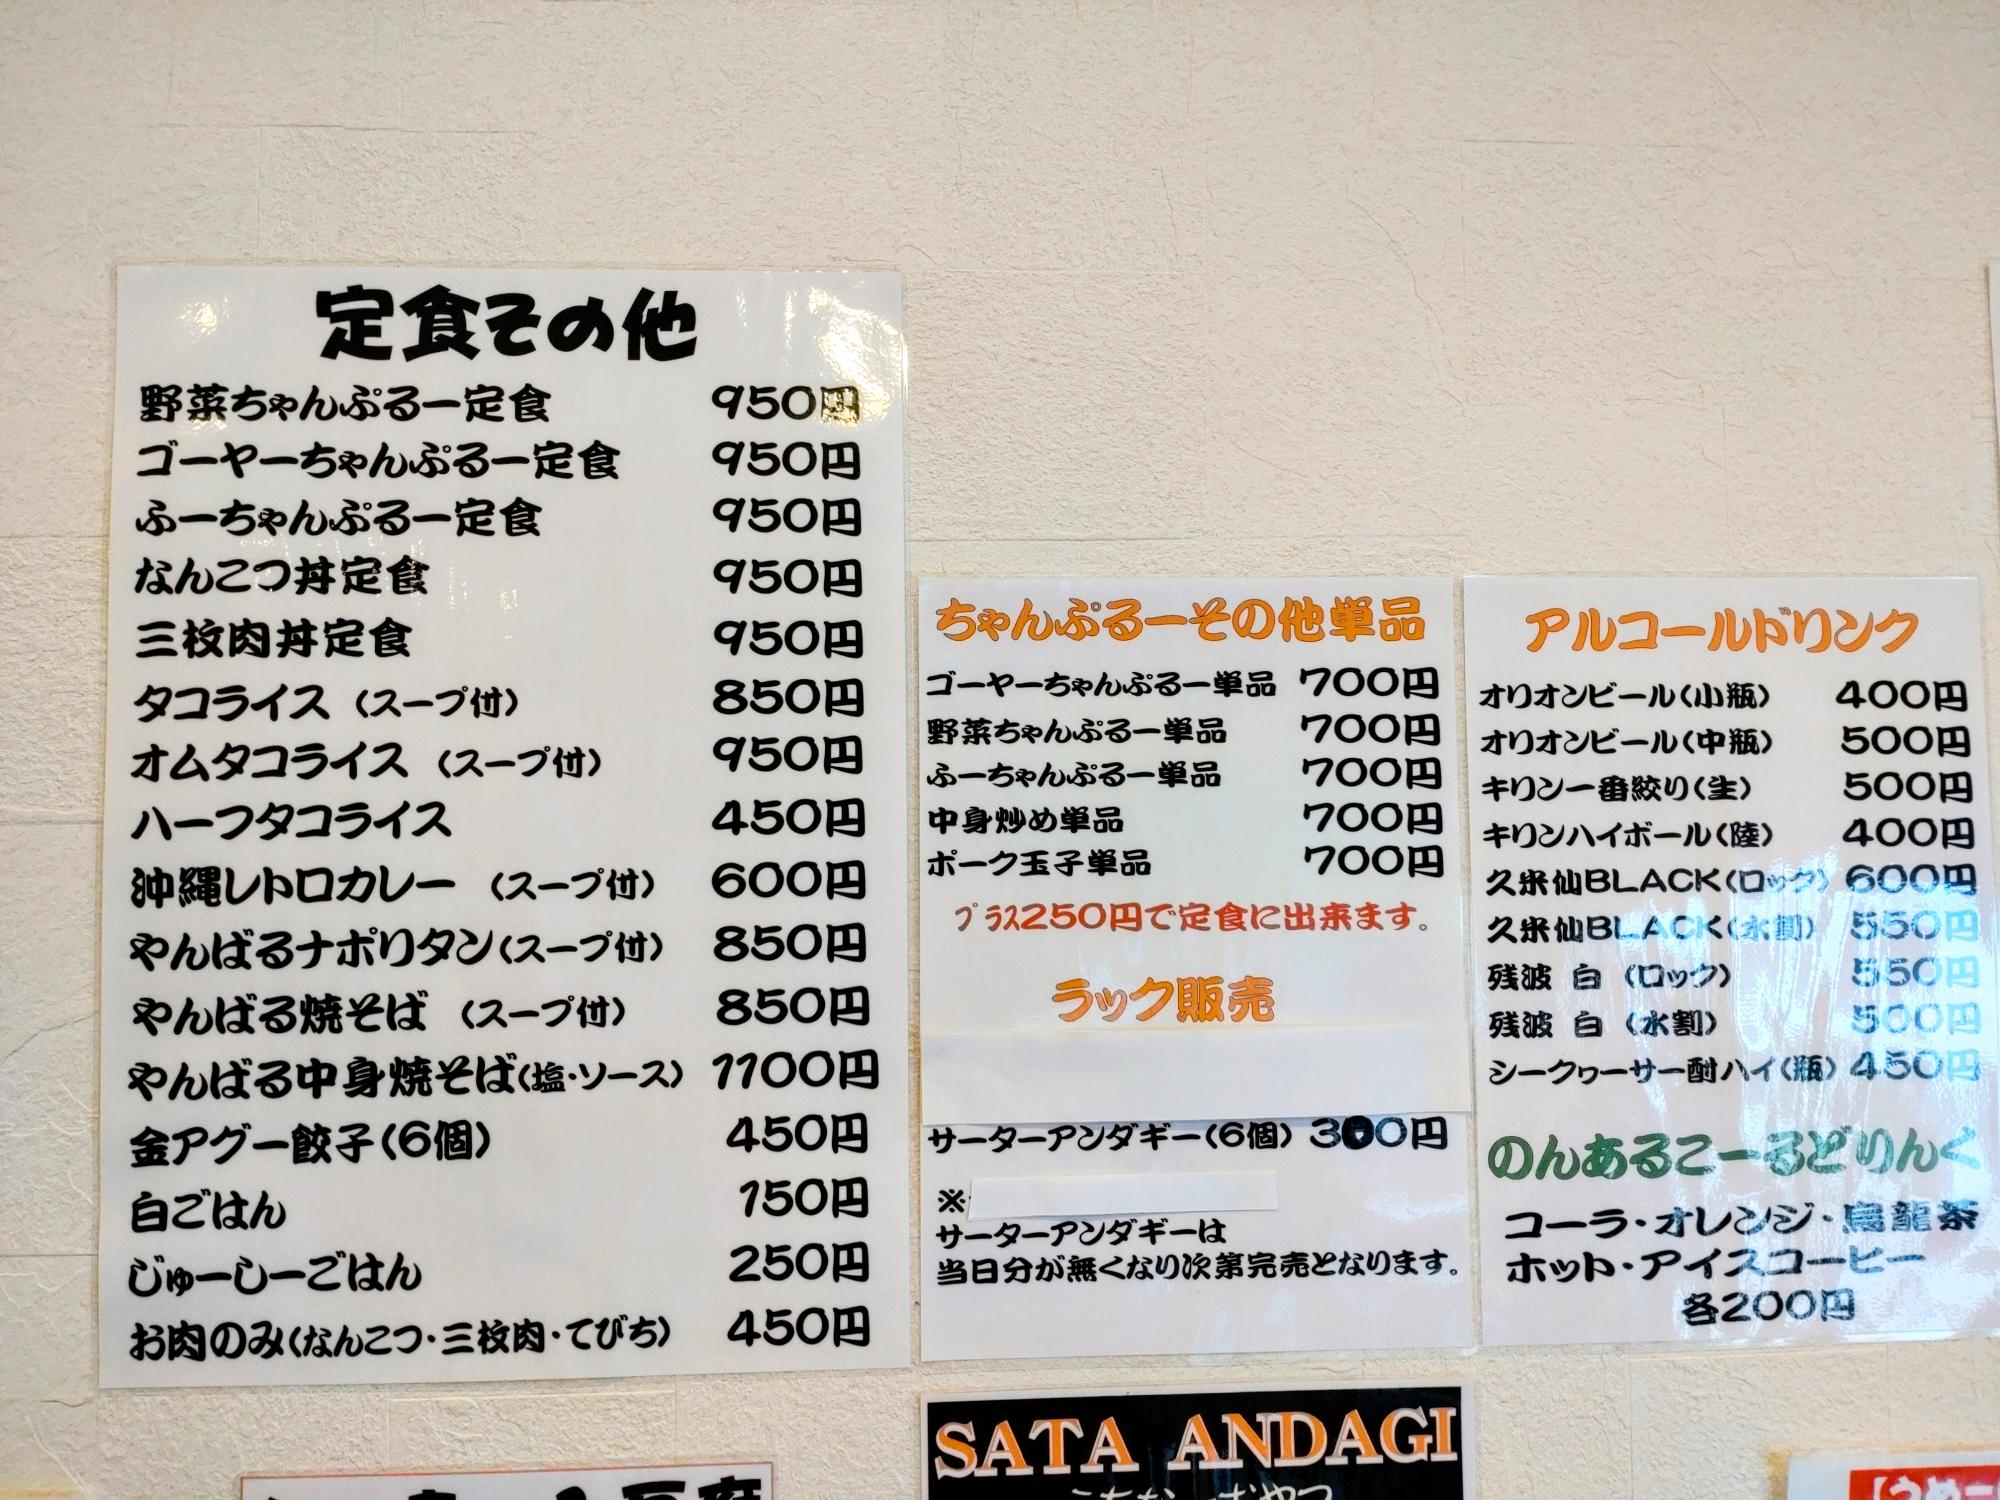 定食その他
野菜ちゃんぷるー定食 950円
ゴーヤーちゃんぷるー定食 950円
ふーちゃんぷるー定食 950円
なんこつ丼定食 950円
三枚肉丼定食 950円
タコライス (スープ付) 850円
オムタコライス (スープ付) 950円
ハーフタコライス 450円
沖縄レトロカレー (スープ付) 600円
やんばるナポリタン(スープ付) 850円
やんばる焼そば (スープ付) 850円
やんばる中身焼そば(塩・ソース) 1100円
金アグー餃子(6個) 450円
白ごはん 150円
じゅーしーごはん 250円
お肉のみ(なんこつ・三枚肉・てびち) 450円
ちゃんぷるーその他単品
ゴーヤーちゃんぷるー単品 700円
野菜ちゃんぷるー単品 700円
ふーちゃんぷるー単品 700円
中身炒め単品 700円
ポーク玉子単品 700円
プラス250円で定食に出来ます。
ラック販売
サーターアンダギー(6個) 300円
※
サーターアンダギーは
当日分が無くなり次第完売となります。
アルコールドリンク
オリオンビール(小瓶) 400円
オリオンビール(中瓶) 500円
キリン一番絞り(生) 500円
キリンハイボール(陸) 400円
久米仙BLACK(ロック) 600円
久米仙BLACK(水割) 550円
残波 白 (ロック) 550円
残波 白 (水割) 500円
シークヮーサー酎ハイ(瓶) 450円
のんあるこーるどりんく
コーラ・オレンジ・烏龍茶
ホット・アイスコーヒー
各200円
SATA ANDAGI